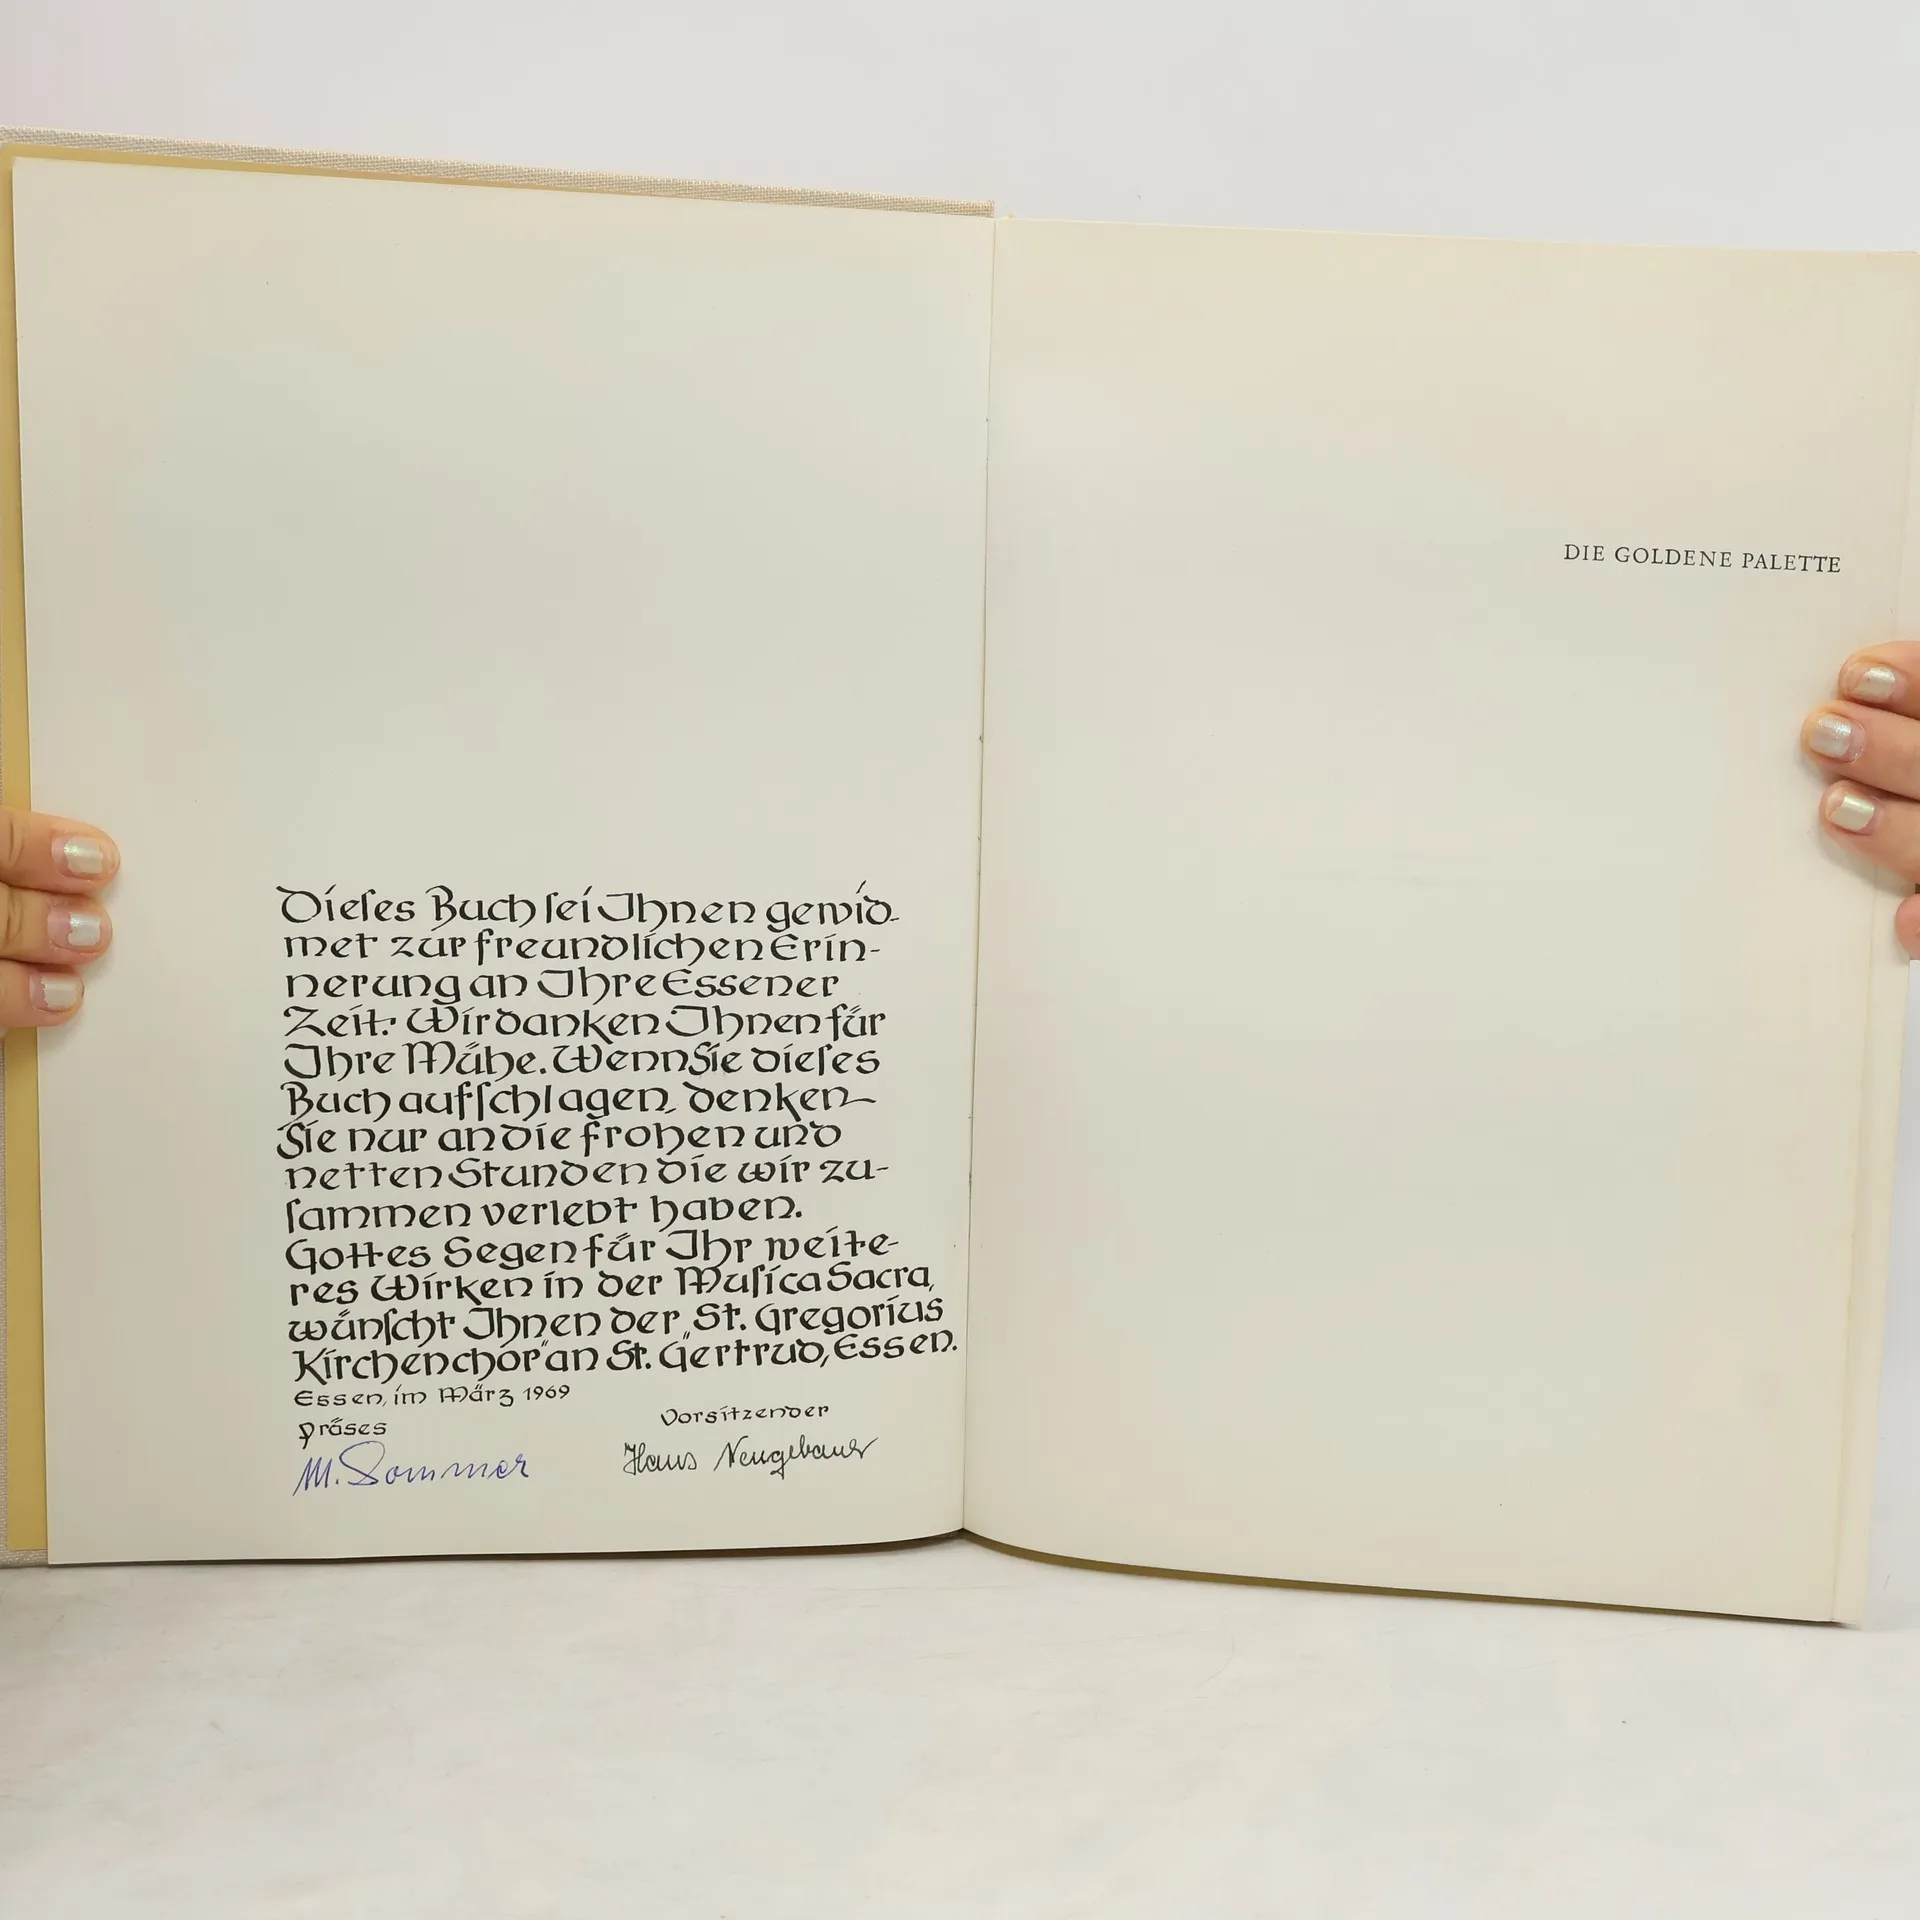 Dieſes Buch ſei Ihnen gewid-
met zur freundlichen Erin-
nerung an Ihre Essener
Zeit. Wir danken Ihnen für
Ihre Mühe. Wenn Sie dieſes
Buch aufſchlagen, denken
Sie nur an die frohen und
netten Stunden die wir zu-
ſammen verlebt haben.
Gottes Segen für Ihr weite-
res Wirken in der Muſica Sacra,
wünſcht Ihnen der „St. Gregorius
Kirchenchor" an St. Gertrud, Essen.
Essen, im März 1969
Präses
Vorsitzender
M. Sommer
Hans Neugebauer
DIE GOLDENE PALETTE